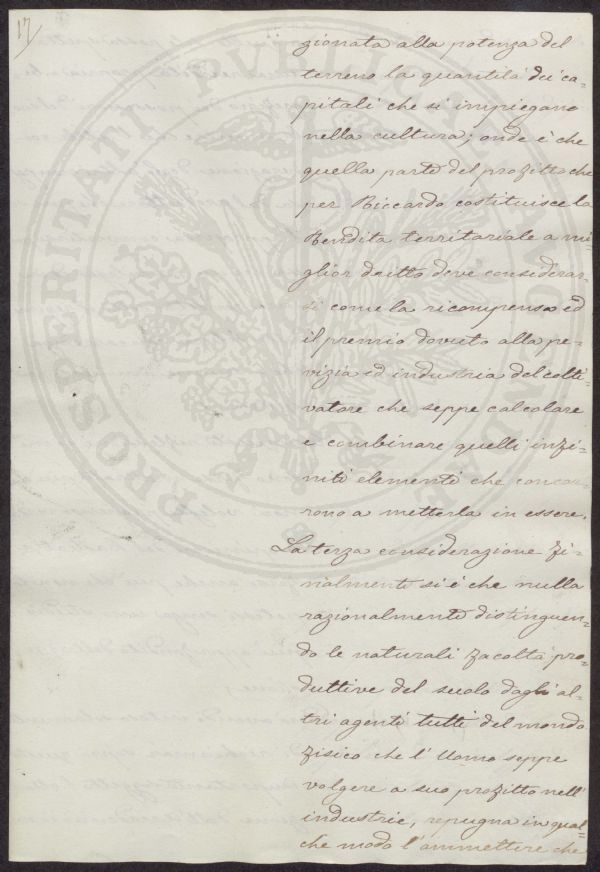 17
gionata alla potenza del
terreno la quantità dei ca-
pitali che si impiegano
nella cultura; onde è che
quella parte del profitto che
per Riccardo costituisce la
Rendita territoriale a mi-
glior dritto deve considerar-
si come la ricompensa ed
il premio dovuto alla pe-
rizia ed industria del colti-
vatore che seppe calcolare
e combinare quelli infi-
niti elementi che concor-
rono a metterla in essere.
La terza considerazione fi-
nalmente si è che nulla
razionalmente distinguen-
do le naturali facoltà pro-
duttive del suolo dagli al-
tri agenti tutti del mondo
fisico che l'Uomo seppe
volgere a suo profitto nell'
industrie, repugna in qual-
che modo l'ammettere che
PROSPERITATI PUBLICAE